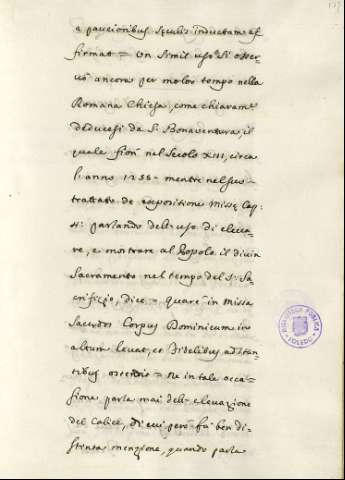 a paucioribus seculis inductam af
firmat = Un simil uso si osser=
vò ancora per molto tempo nella
Romana Chiesa, come chiaram.e
deducesi da S. Bonaventura, il
quale fiorì nel Secolo XIII, circa
l'anno 1256 - mentre nel suo
trattato de expositione Missę Cap:
4: parlando dell'uso di eleva=
re, e mostrare al Popolo il divin
Sacramento nel tempo del S. Sa=
crifizio, dice = quare in Missa
Sacerdos Corpus Dominicum in
altum levat, et Fidelibus adstan=
tibus ostendit = Ne in tale occa=
sione parla mai dell'elevazione
del Calice, di cui però fù ben di=
stenta menzione, quando parla
BIBLIOTECA PUBLICA
TOLEDO